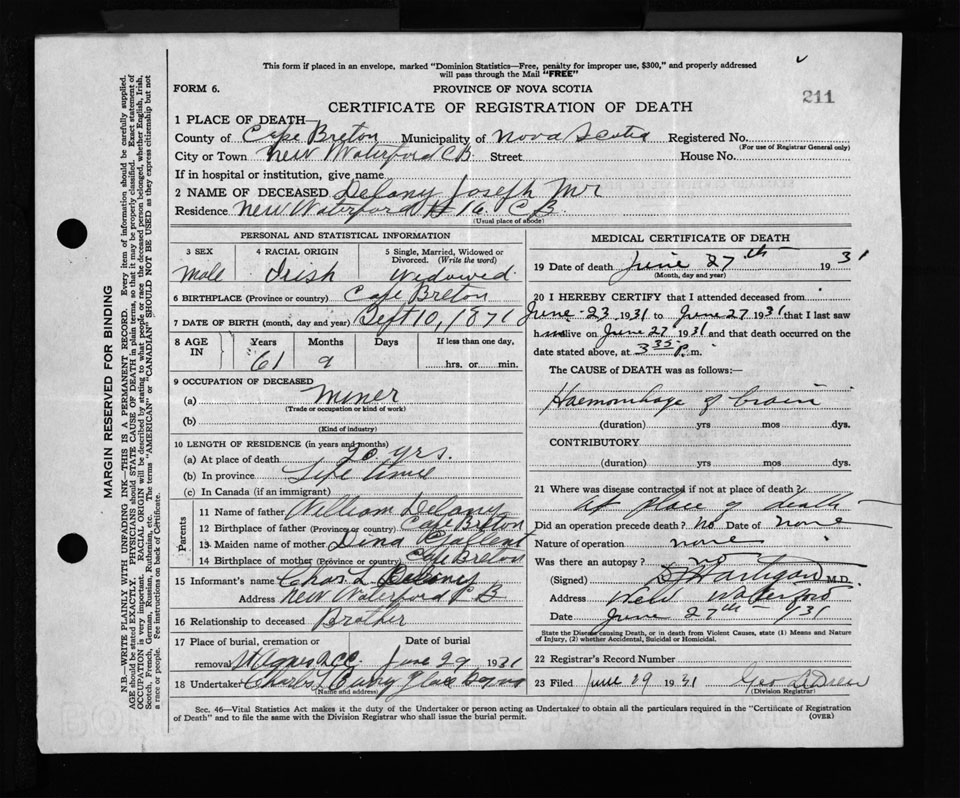 This form if placed in an envelope, marked "Dominion Statistics—Free, penalty for improper use, $300," and properly addressed
will pass through the Mail "FREE"
FORM 6.
PROVINCE OF NOVA SCOTIA
211
CERTIFICATE OF REGISTRATION OF DEATH
1 PLACE OF DEATH—
County of Cape Breton Municipality of Nova Scotia Registered No.
(For use of Registrar General only)
City or Town New Waterford C.B. Street House No.
If in hospital or institution, give name
2 NAME OF DECEASED Delany Joseph Mr
Residence New Waterford # 16 C B.
(Usual place of abode)
PERSONAL AND STATISTICAL INFORMATION
3 SEX 4 RACIAL ORIGIN 5 Single, Married, Widowed or
Divorced. (Write the word)
Male Irish Widowed.
6 BIRTHPLACE (Province or country) Cape Breton
7 DATE OF BIRTH (month, day and year) Sept 10, 1871
8 AGE IN Years Months Days If less than one day,
61 9 hrs. or min.
9 OCCUPATION OF DECEASED
(a) Miner
(Trade or occupation or kind of work)
(b)
(Kind of industry)
10 LENGTH OF RESIDENCE (in years and months)
(a) At place of death 20 yrs.
(b) In province Life time
(c) In Canada (if an immigrant)
Parents
11 Name of father William Delany
12 Birthplace of father (Province or country) Cape Breton
13 Maiden name of mother Dina
14 Birthplace of mother (Province or country) Cape Breton
15 Informant's name Chas L Delany
Address New Waterford C B
16 Relationship to deceased Brother
17 Place of burial, cremation or Date of burial
removal June 29 1931
18 Undertaker Glace Bay
(Name and address)
MEDICAL CERTIFICATE OF DEATH
19 Date of death June 27th 1931
(Month, day and year)
20 I HEREBY CERTIFY that I attended deceased from
June - 23, 1931 to June 27 1931 that I last saw
him alive on June 27 1931 and that death occurred on
date stated above, at 3 35 P. m.
The CAUSE of DEATH was as follows:—
Haemorrhage of brain
(duration) yrs mos dys.
CONTRIBUTORY
(duration) yrs mos dys.
21 Where was disease contracted if not at place of death?
at place of death
Did an operation precede death? No Date of none
Nature of operation none
Was there an autopsy? no
(Signed) M.D.
Address New Waterford
Date June 27th 1931
State the Disease causing Death, or in death from Violent Causes, state (1) Means and Nature
of Injury, (2) whether Accidental, Suicidal or Homicidal.
22 Registrar's Record Number
23 Filed June 29 1931 Geo
(Division Registrar)
Sec. 46—Vital Statistics Act makes it the duty of the Undertaker or person acting as Undertaker to obtain all the particulars required in the "Certificate of Registration
of Death" and to file the same with the Division Registrar who shall issue the burial permit.
(OVER)
MARGIN RESERVED FOR BINDING
N.B.—WRITE PLAINLY WITH UNFADING INK—THIS IS A PERMANENT RECORD. Every item of information should be carefully supplied.
AGE should be stated EXACTLY. PHYSICIANS should STATE CAUSE OF DEATH in plain terms, so that it may be properly classified. Exact statement of
OCCUPATION is very important. RACIAL ORIGIN will be described by stating to what people or race the deceased person belonged, whether English, Irish,
Scotch, French, German, Russian, Ruthenian, etc. The terms "AMERICAN" or "CANADIAN" SHOULD NOT BE USED as they express citizenship but not
a race or people. See instructions on back of Certificate.